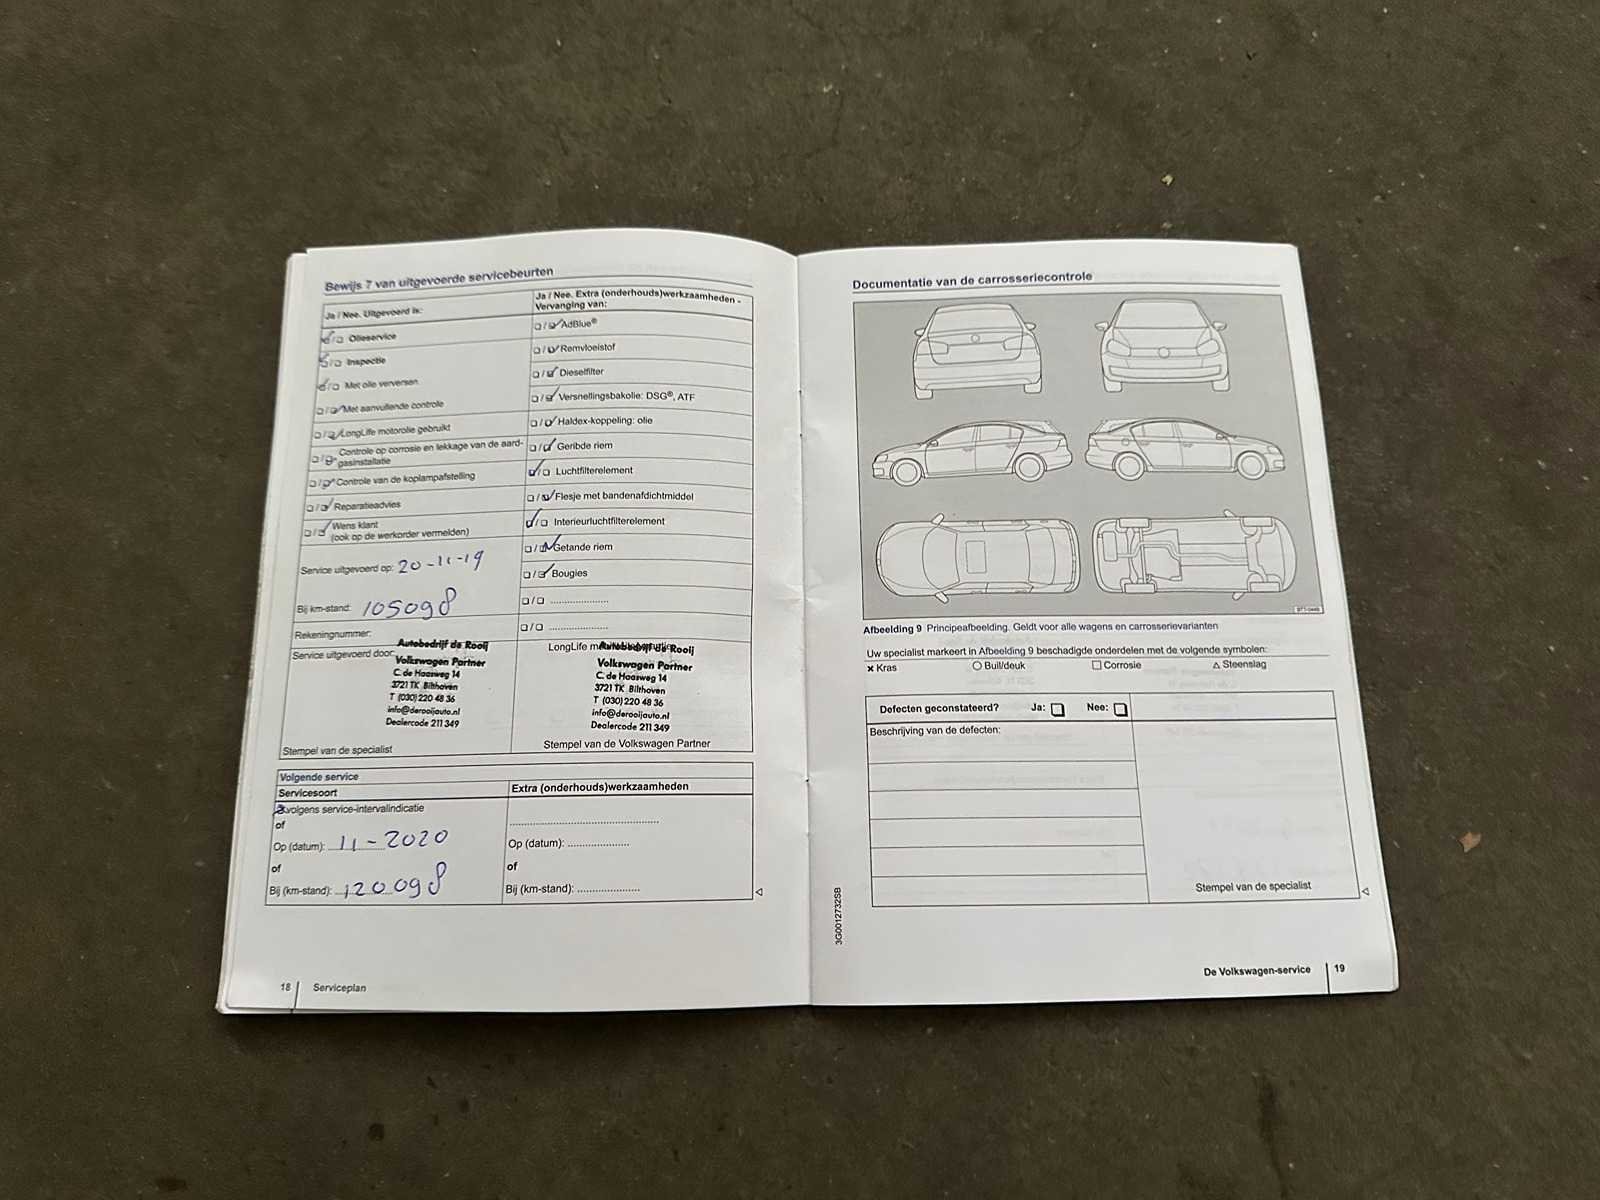 Bewijs 7 van uitgevoerde servicebeurten
Ja / Nee. Uitgevoerd is:
Olieservice
Inspectie
Met olie verversen
Met aanvullende controle
LongLife motorolie gebruikt
Controle op corrosie en lekkage van de aard-
gasinstallatie
Controle van de koplampafstelling
Reparatieadvies
Wens klant
(ook op de werkorder vermelden)
Service uitgevoerd op: 20-11-19
Bij km-stand: 105098
Rekeningnummer:
Service uitgevoerd door:
Autobedrijf de Rooij
Volkswagen Partner
C. de Haasweg 14
3721 TK Bilthoven
T (030) 220 48 36
info@derooijauto.nl
Dealercode 211 349
Stempel van de specialist
Ja / Nee. Extra (onderhouds)werkzaamheden -
Vervanging van:
AdBlue®
Remvloeistof
Dieselfilter
Versnellingsbakolie: DSG®, ATF
Haldex-koppeling: olie
Geribde riem
Luchtfilterelement
Flesje met bandenafdichtmiddel
Interieurluchtfilterelement
Getande riem
Bougies
LongLife
Autobedrijf de Rooij
Volkswagen Partner
C. de Haasweg 14
3721 TK Bilthoven
T (030) 220 48 36
info@derooijauto.nl
Dealercode 211 349
Stempel van de Volkswagen Partner
Volgende service
Servicesoort
volgens service-intervalindicatie
of
Op (datum): 11-2020
of
Bij (km-stand): 120098
Extra (onderhouds)werkzaamheden
Op (datum):
of
Bij (km-stand):
18 Serviceplan
Documentatie van de carrosseriecontrole
Afbeelding 9 Principeafbeelding. Geldt voor alle wagens en carrosserievarianten
Uw specialist markeert in Afbeelding 9 beschadigde onderdelen met de volgende symbolen:
Kras Buil/deuk Corrosie Steenslag
Defecten geconstateerd? Ja: Nee:
Beschrijving van de defecten:
Stempel van de specialist
3G0012732SB
De Volkswagen-service 19